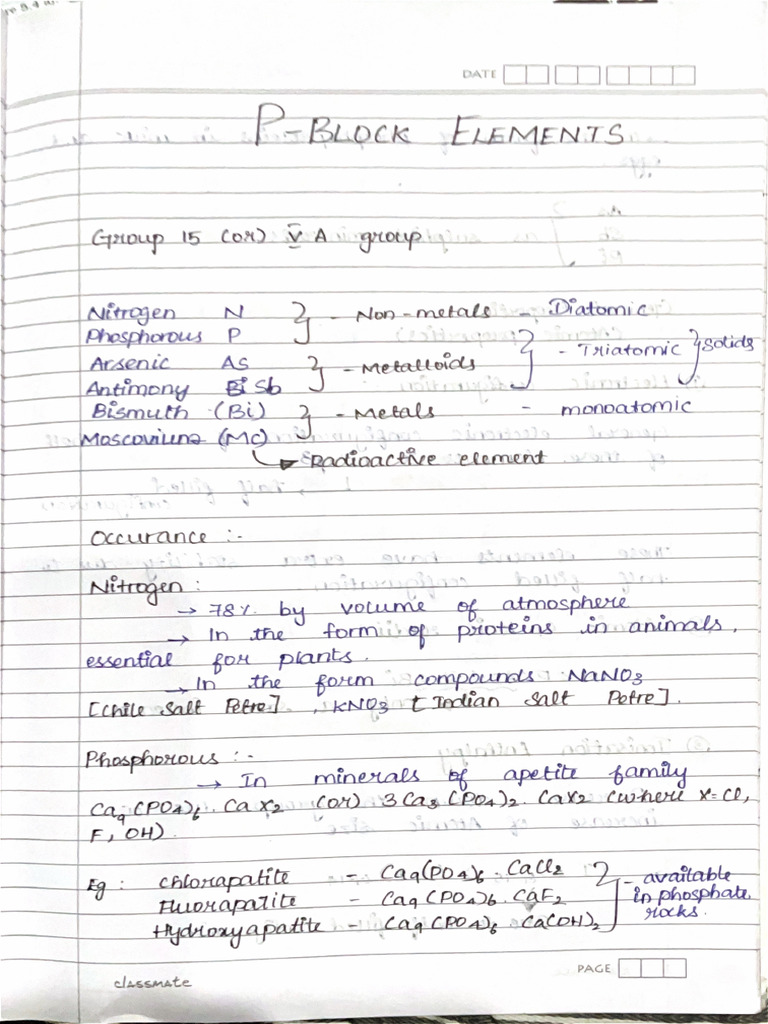 DATE
P-BLOCK ELEMENTS
Group 15 (or) V A group
Nitrogen N } - Non-metals - Diatomic
Phosphorous P
Arsenic AS } - Metalloids } - Triatomic } Solids
Antimony Sb
Bismuth (Bi) } - Metals - monoatomic
Moscovium (Mc)
↳ Radioactive element
Occurance :-
Nitrogen :
→ 78% by volume of atmosphere
→ In the form of proteins in animals,
essential for plants.
→ In the form compounds NaNO3
[Chile Salt Petre], KNO3 [Indian Salt Petre].
Phosphorous :-
→ In minerals of apetite family
Ca9(PO4)6 . CaX2 (or) 3Ca3(PO4)2. CaX2 (where X=Cl,
F, OH)
Eg : Chlorapatite - Ca9(PO4)6 . CaCl2 } - available
Fluorapatite - Ca9(PO4)6 . CaF2 in phosphate
Hydroxyapatite - Ca9(PO4)6 . Ca(OH)2 rocks.
PAGE
classmate